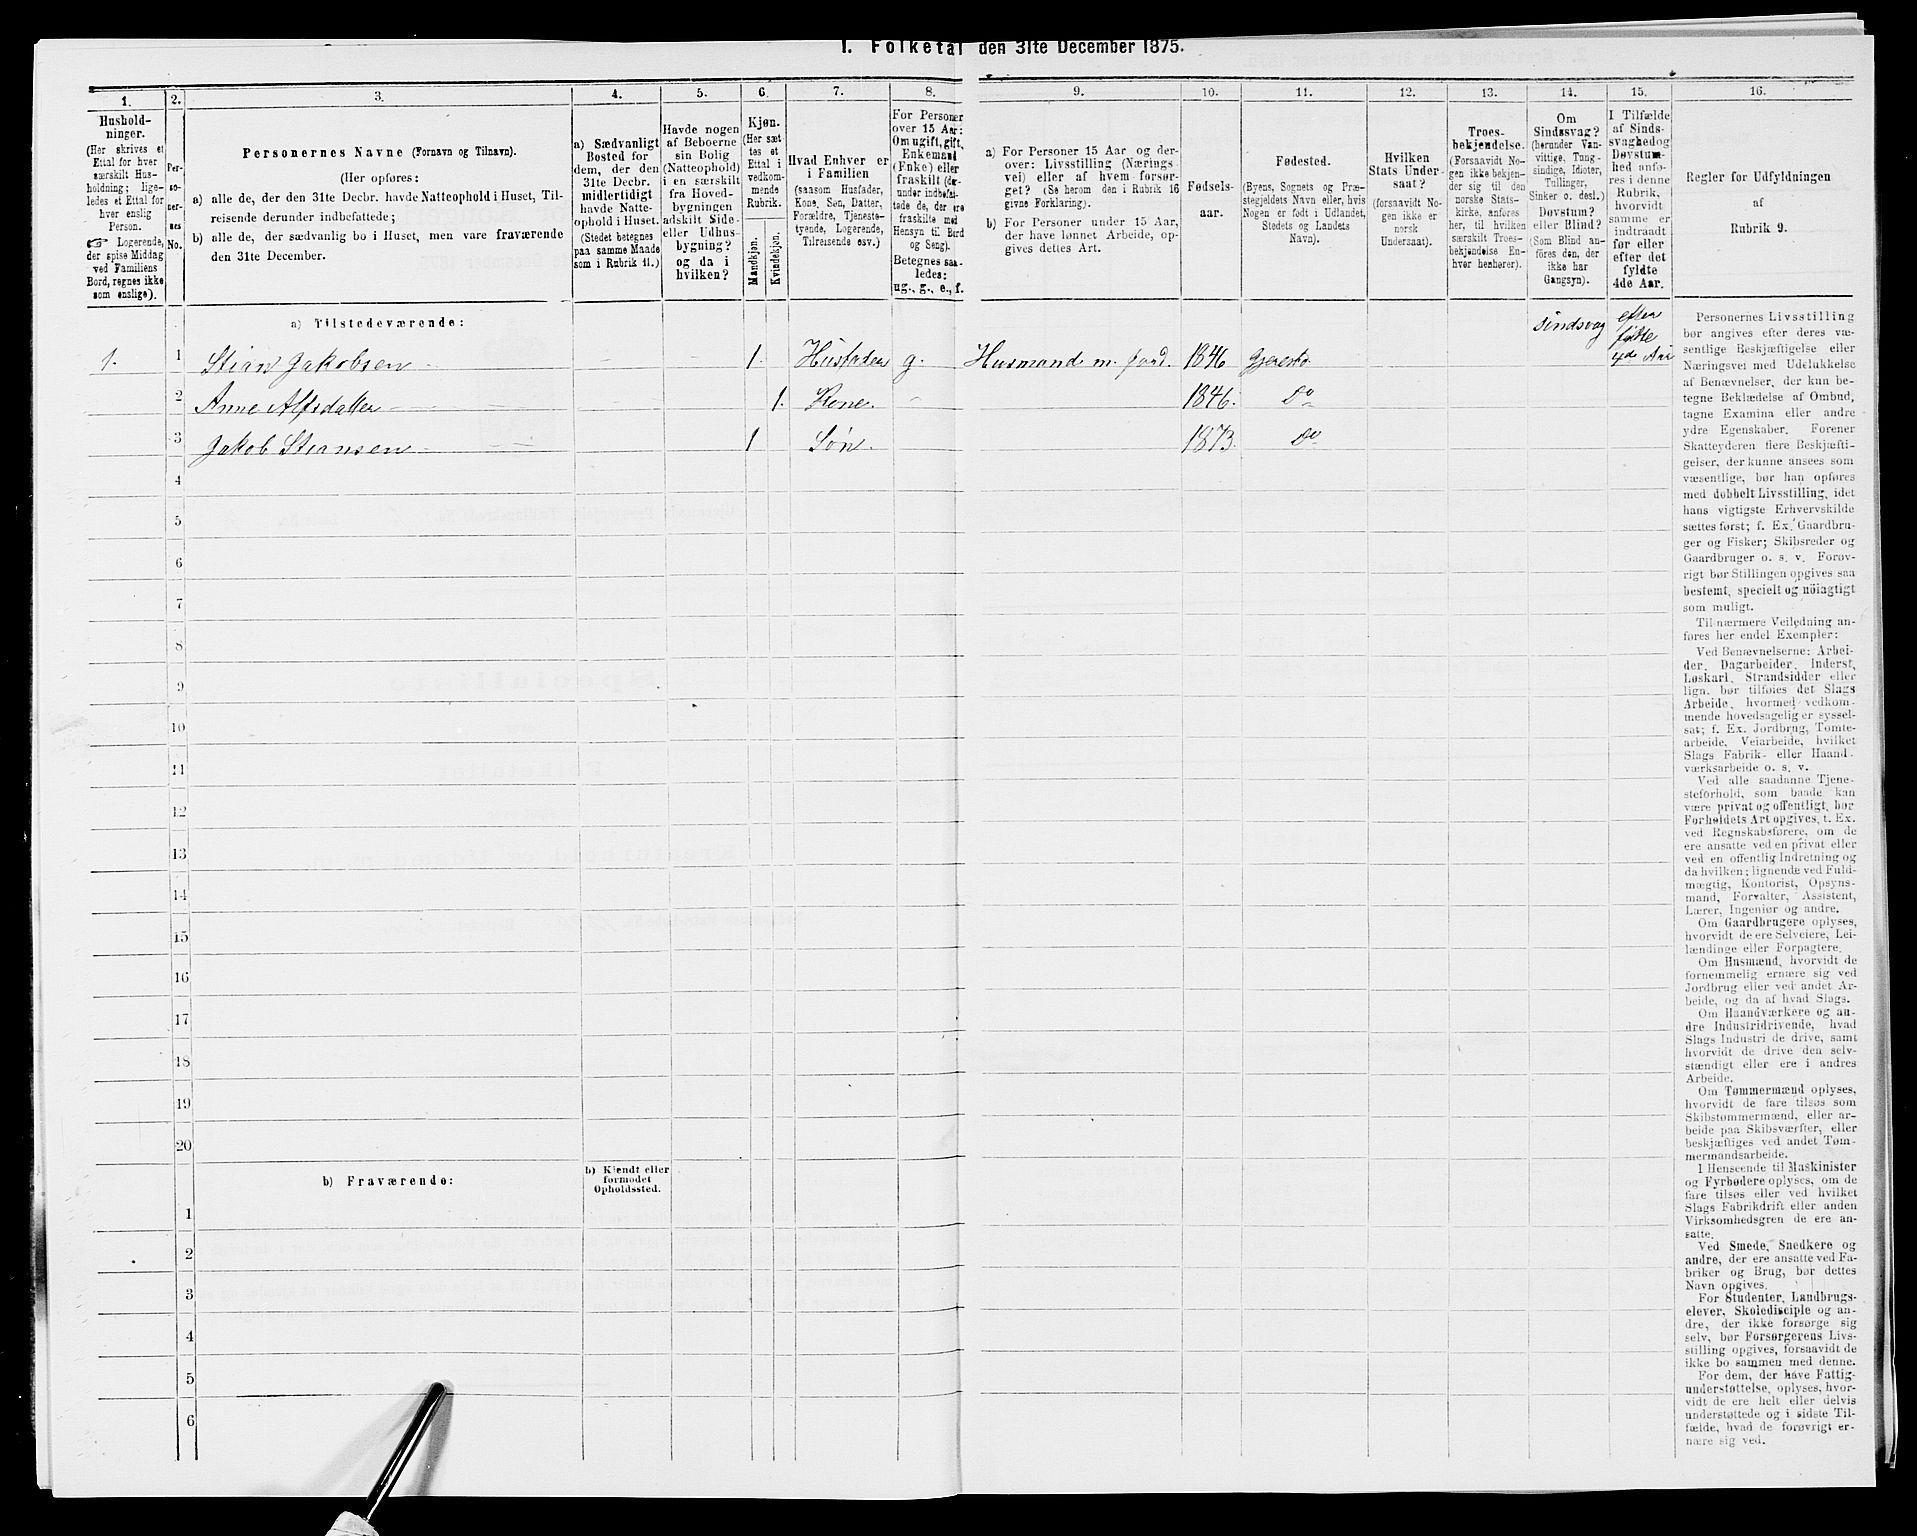 I. Folketal den 31te December 1875.
1.
Hushold-
ninger.
(Her skrives et
Ettal for hver
særskilt Hus-
holdning; lige-
ledes et Ettal for
hver enslig
Person.
☞ Logerende,
der spise Middag
ved Familiens
Bord, regnes ikke
som enslige).
2.
Per-
so-
ner-
nes
No.
3.
Personernes Navne (Fornavn og Tilnavn).
(Her opføres:
a) alle de, der den 31te Decbr. havde Natteophold i Huset, Til-
reisende derunder indbefattede;
b) alle de, der sædvanlig bo i Huset, men vare fraværende
den 31te December.
4.
a) Sædvanligt
Bosted for
dem, der den
31te Decbr.
midlertidigt
havde Natte-
ophold i Huset.
(Stedet betegnes
paa samme Maade
som i Rubrik 11.)
5.
Havde nogen
af Beboerne
sin Bolig
(Natteophold)
i en særskilt
fra Hoved-
bygningen
adskilt Side-
eller Udhus-
bygning?
og da i
hvilken?
6.
Kjøn.
(Her sæt-
tes et
Ettal i
vedkom-
mende
Rubrik.
Mandkjøn.
Kvindekjøn.
7.
Hvad Enhver er
i Familien
(saasom Husfader,
Kone, Søn, Datter,
Forældre, Tjeneste-
tyende, Logerende,
Tilreisende osv.)
8.
For Personer
over 15 Aar:
Om ugift, gift,
Enkemand
(Enke) eller
fraskilt (de-
runder indbefat-
tede de, der ere
fraskilte med
Hensyn til Bord
og Seng).
Betegnes saa-
ledes:
ug., g., e., f.
9.
a) For Personer 15 Aar og der-
over: Livsstilling (Nærings-
vei) eller af hvem forsør-
get? (Se herom den i Rubrik 16
givne Forklaring).
b) For Personer under 15 Aar,
der have lønnet Arbeide, op-
gives dettes Art.
10.
Fødsels-
aar.
11.
Fødested.
(Byens, Sognets og Præ-
stegjeldets Navn eller, hvis
Nogen er født i Udlandet,
Stedets og Landets
Navn).
12.
Hvilken
Stats Under-
saat?
(forsaavidt No-
gen ikke er
norsk
Undersaat).
13.
Troes-
bekjendelse.
(Forsaavidt No-
gen ikke bekjen-
der sig til den
norske Stats-
kirke, anføres
her, til hvilken
særskilt Troes-
bekjendelse En-
hver henhører).
14.
Om
Sindssvag?
(herunder Van-
vittige, Tung-
sindige, Idioter,
Tullinger,
Sinker o. desl.)
Døvstum?
eller Blind?
(Som Blind an-
føres den, der
ikke har
Gangsyn).
15.
I Tilfælde
af Sinds-
svaghed og
Døvstum-
hed anfø-
res i denne
Rubrik,
hvorvidt
samme er
indtraadt
før eller
efter det
fyldte
4de Aar.
16.
Regler for Udfyldningen
af
Rubrik 9.
a) Tilstedeværende:
1. 1 Stian Jakobsen 1. Husfader g. Husmand m. jord. 1846 Gjerestad sindsvag efter fyldte 4de Aar
2 Anne Alfsdatter 1. Kone. 1846. Do
3 Jakob Stiansen 1 Søn. 1873. Do
4
5
6
7
8
9
10
11
12
13
14
15
16
17
18
19
20
b) Fraværende:
b) Kjendt eller
formodet
Opholdssted.
1
2
3
4
5
6
Personernes Livsstilling
bør angives efter deres væ-
sentlige Beskjæftigelse eller
Næringsvei med Udelukkelse
af Benævnelser, der kun be-
tegne Beklædelse af Ombud,
tagne Examina eller andre
ydre Egenskaber. Forener
Skatteyderen flere Beskjæfti-
gelser, der kunne ansees som
væsentlige, bør han opføres
med dobbelt Livsstilling, idet
hans vigtigste Erhvervskilde
sættes først; f. Ex. Gaardbru-
ger og Fisker; Skibsreder og
Gaardbruger o. s. v. Forøv-
rigt bør Stillingen opgives saa
bestemt, specielt og nöiagtigt
som muligt.
Til nærmere Veiledning an-
føres her endel Exempler:
Ved Benævnelserne: Arbei-
der, Dagarbeider, Inderst,
Løskarl, Strandsidder eller
lign. bør tilføies det Slags
Arbeide, hvormed vedkom-
mende hovedsagelig er syssel-
sat; f. Ex. Jordbrug, Tomte-
arbeide, Veiarbeide, hvilket
Slags Fabrik- eller Haand-
værksarbeide o. s. v.
Ved alle saadanne Tjene-
steforhold, som baade kan
være privat og offentligt, bør
Forholdets Art opgives, t. Ex.
ved Regnskabsførere, om de
ere ansatte ved en privat eller
ved en offentlig Indretning og
da hvilken; lignende ved Fuld-
mægtig, Kontorist, Opsyns-
mand, Forvalter, Assistent,
Lærer, Ingeniør og andre.
Om Gaardbrugere oplyses,
hvorvidt de ere Selveiere, Lei-
lændinge eller Forpagtere.
Om Husmænd, hvorvidt de
fornemmelig ernære sig ved
Jordbrug eller ved andet Ar-
beide, og da af hvad Slags.
Om Haandværkere og an-
dre Industridrivende, hvad
Slags Industri de drive, samt
hvorvidt de drive den selv-
stændigt eller ere i andres
Arbeide.
Om Tømmermænd oplyses,
hvorvidt de fare tilsøs som
Skibstømmermænd, eller ar-
beide paa Skibsværfter, eller
beskjæftiges ved andet Tøm-
mermandsarbeide.
I Henseende til Maskinister
og Fyrbødere oplyses, om de
fare tilsøs eller ved hvilket
Slags Fabrikdrift eller anden
Virksomhedsgren de ere an-
satte.
Ved Smede, Snedkere og
andre, der ere ansatte ved Fa-
briker og Brug, bør dettes
Navn opgives.
For Studenter, Landbrugs-
elever, Skoledisciple og an-
dre, der ikke forsørge sig
selv, bør Forsørgerens Livs-
stilling opgives, forsaavidt de
ikke bo sammen med denne.
For dem, der have Fattig-
understøttelse, oplyses, hvor-
vidt de ere helt eller delvis
understøttede og i sidste Til-
fælde, hvad de forøvrigt er-
nære sig ved.